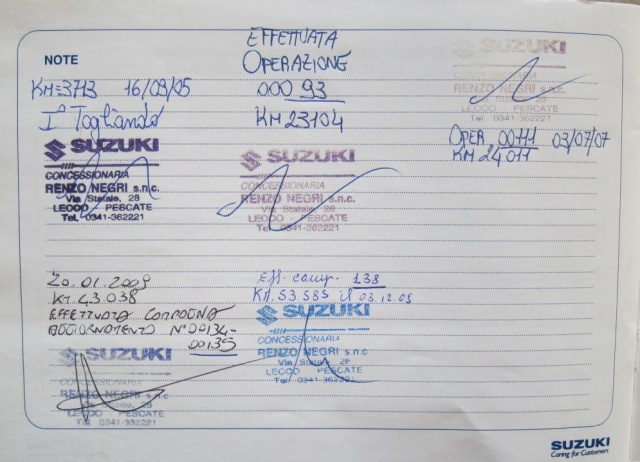 NOTE
KM=3713 16/09/05
I° Tagliando
SUZUKI
CONCESSIONARIA
RENZO NEGRI s.n.c.
Via Statale, 28
LECCO - PESCATE
Tel. 0341-362221
EFFETTUATA
OPERAZIONE
000 93
KM 23104
SUZUKI
CONCESSIONARIA
RENZO NEGRI s.n.c.
Via Statale, 28
LECCO - PESCATE
Tel. 0341-362221
SUZUKI
CONCESSIONARIA
RENZO NEGRI s.n.c.
LECCO PESCATE
Tel. 0341-362221
OPER 00111 03/07/07
KM 24011
20.01.2009
KM.43.038
EFFETTUATA CAMPAGNA
AGGIORNAMENTO N°00134-
00135
SUZUKI
CONCESSIONARIA
RENZO NEGRI s.n.c
LECCO PESCATE
Tel. 0341-362221
Eff. camp. 138
KM.53585 il 03.12.09
SUZUKI
CONCESSIONARIA
RENZO NEGRI s.n.c
Via Statale, 28
LECCO PESCATE
Tel. 0341-362221
SUZUKI
Caring for Customers